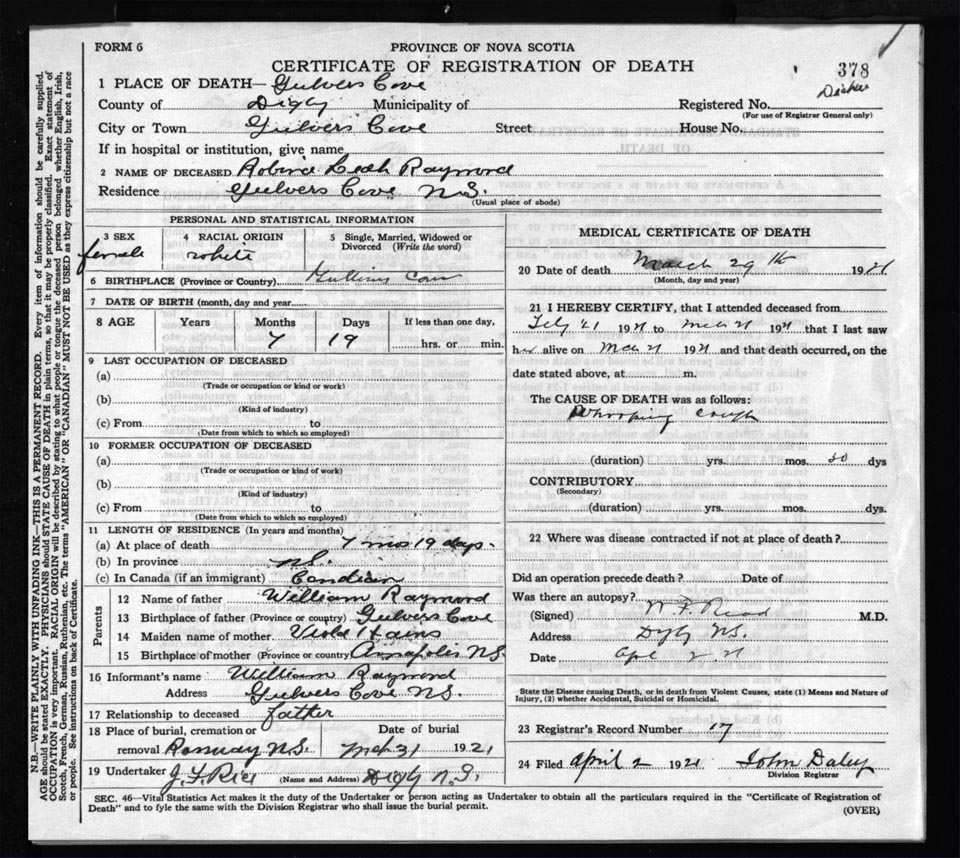 FORM 6
PROVINCE OF NOVA SCOTIA
CERTIFICATE OF REGISTRATION OF DEATH
378
1 PLACE OF DEATH—Gulvers Cove
County of Digby Municipality of
Registered No.
(For use of Registrar General only)
City or Town Gulvers Cove Street House No.
If in hospital or institution, give name
2 NAME OF DECEASED Leah Raymond
Residence Gulvers Cove N.S.
(Usual place of abode)
PERSONAL AND STATISTICAL INFORMATION
3 SEX
female
4 RACIAL ORIGIN
white
5 Single, Married, Widowed or Divorced (Write the word)
6 BIRTHPLACE (Province or Country)
7 DATE OF BIRTH (month, day and year)
8 AGE Years Months Days If less than one day,
7 19 hrs. or min.
9 LAST OCCUPATION OF DECEASED
(a)
(Trade or occupation or kind or work)
(b)
(Kind of industry)
(c) From to
(Date from which to which so employed)
10 FORMER OCCUPATION OF DECEASED
(a)
(Trade or occupation or kind of work)
(b)
(Kind of industry)
(c) From to
(Date from which to which so employed)
11 LENGTH OF RESIDENCE (In years and months)
(a) At place of death 7 mos 19 days
(b) In province N.S.
(c) In Canada (if an immigrant) Candian
Parents
12 Name of father William Raymond
13 Birthplace of father (Province or country) Gulvers Cove
14 Maiden name of mother
15 Birthplace of mother (Province or country) Annapolis N.S
16 Informant's name William Raymond
Address Gulvers Cove N.S.
17 Relationship to deceased father
18 Place of burial, cremation or Date of burial
removal N.S. Mch 31 1921
19 Undertaker J. F. Rice (Name and Address) Digby N.S.
MEDICAL CERTIFICATE OF DEATH
20 Date of death March 29th 1921
(Month, day and year)
21 I HEREBY CERTIFY, that I attended deceased from
1921 to 1921 that I last saw
her alive on 1921 and that death occurred, on the
date stated above, at m.
The CAUSE OF DEATH was as follows:
Whooping cough
(duration) yrs. mos. 30 dys
CONTRIBUTORY
(Secondary)
(duration) yrs. mos. dys.
22 Where was disease contracted if not at place of death?
Did an operation precede death? Date of
Was there an autopsy?
(Signed) W. F. Read M.D.
Address Digby N.S.
Date Apl 2 21
State the Disease causing Death, or in death from Violent Causes, state (1) Means and Nature of
Injury, (2) whether Accidental, Suicidal or Homicidal.
23 Registrar's Record Number 17
24 Filed April 2 1921 John Daley
Division Registrar
SEC. 46—Vital Statistics Act makes it the duty of the Undertaker or person acting as Undertaker to obtain all the particulars required in the "Certificate of Registration of
Death" and to fyle the same with the Division Registrar who shall issue the burial permit.
(OVER)
N.B.—WRITE PLAINLY WITH UNFADING INK—THIS IS A PERMANENT RECORD. Every item of information should be carefully supplied.
AGE should be stated EXACTLY. PHYSICIANS should STATE CAUSE OF DEATH in plain terms, so that it may be properly classified. Exact statement of
OCCUPATION is very important. RACIAL ORIGIN will be described by stating to what people or tongue the deceased person belonged, whether English, Irish,
Scotch, French, German, Russian, Ruthenian, etc. The terms "AMERICAN" OR "CANADIAN" MUST NOT BE USED as they express citizenship but not a race
or people. See instructions on back of Certificate.